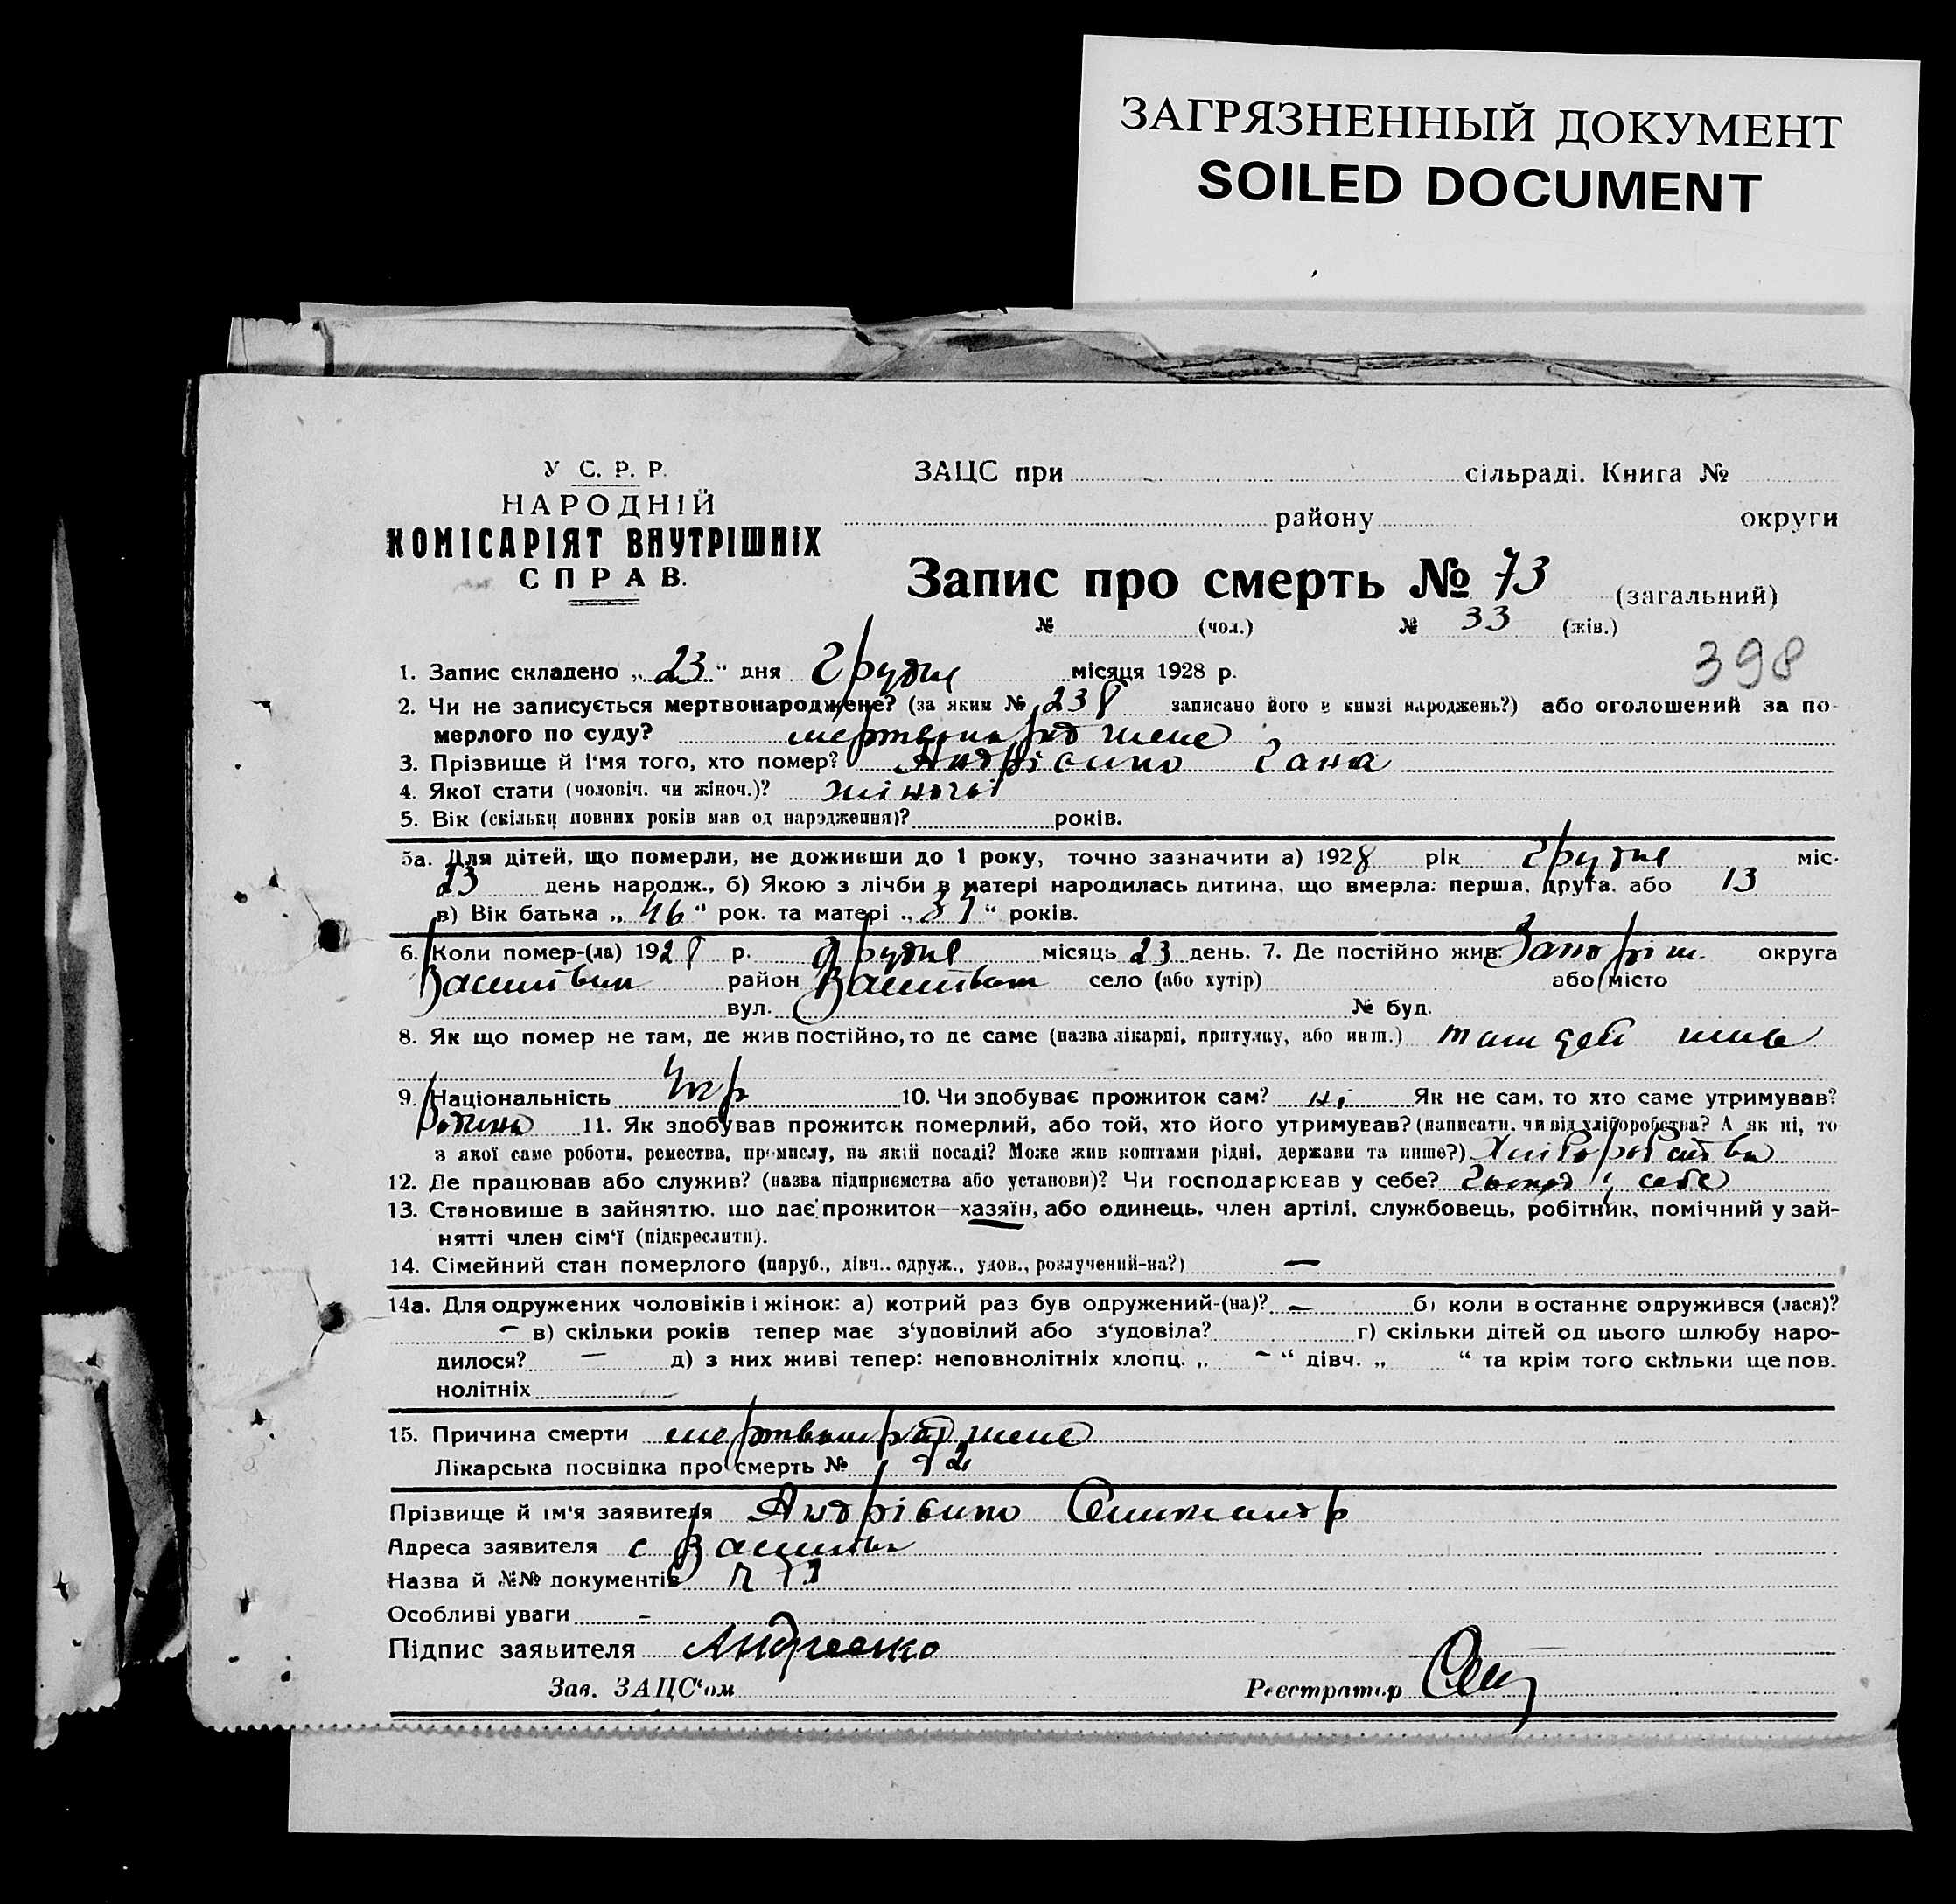 ЗАГРЯЗНЕННЫЙ ДОКУМЕНТ
SOILED DOCUMENT
У С. Р. Р.
НАРОДНІЙ
КОМІСАРІЯТ ВНУТРІШНІХ
СПРАВ.
ЗАЦС при сільраді. Книга №
району округи
Запис про смерть № 73 (загальний)
№ (чол.) № 33 (жін.)
398
1. Запис складено „23“ дня Грудня місяця 1928 р.
2. Чи не записується мертвонароджене? (за яким № 238 записано його в книзі народжень?) або оголошений за по-
мерлого по суду? мертвонароджене
3. Прізвище й і'мя того, хто помер? Андрієнко Гана
4. Якої стати (чоловіч. чи жіноч.)? жіночої
5. Вік (скільки повних років мав од народження)? років.
5а. Для дітей, що померли, не доживши до 1 року, точно зазначити а) 1928 рік Грудня міс.
23 день народж., б) Якою з лічби в матері народилась дитина, що вмерла: перша, друга, або 13
в) Вік батька „46“ рок. та матері „37“ років.
6. Коли помер-(ла) 1928 р. Грудня місяць 23 день. 7. Де постійно жив Запоріж. округа
район село (або хутір) або місто
вул. № буд.
8. Як що помер не там, де жив постійно, то де саме (назва лікарні, притулку, або инш.) там де й жив
9. Національність Укр 10. Чи здобуває прожиток сам? ні Як не сам, то хто саме утримував?
родина 11. Як здобував прожиток померлий, або той, хто його утримував? (написати, чи від хліборобства? А як ні, то
з якої саме роботи, ремества, промислу, на якій посаді? Може жив коштами рідні, держави та инше?) Хліборобства
12. Де працював або служив? (назва підприємства або установи)? Чи господарював у себе? Господ у себе
13. Становище в зайняттю, що дає прожиток—хазяїн, або одинець, член артілі, службовець, робітник, помічний у зай-
нятті член сім'ї (підкреслити).
14. Сімейний стан померлого (паруб., дівч., одруж., удов., розлучений-на?) —
14а. Для одружених чоловіків і жінок: а) котрий раз був одружений-(на)? — б) коли в останнє одружився (лася)?
– в) скільки років тепер має з'удовілий або з'удовіла? г) скільки дітей од цього шлюбу наро-
дилося? — д) з них живі тепер: неповнолітніх хлопц. „ –“ дівч. „ “ та крім того скільки ще пов-
нолітніх
15. Причина смерти мертвонароджене
Лікарська посвідка про смерть №
Прізвище й ім'я заявителя Андрієнко Олександр
Адреса заявителя с
Назва й №№ документів № 73
Особливі уваги –
Підпис заявителя Андреенко
Зав. ЗАЦС'ом Реєстратор